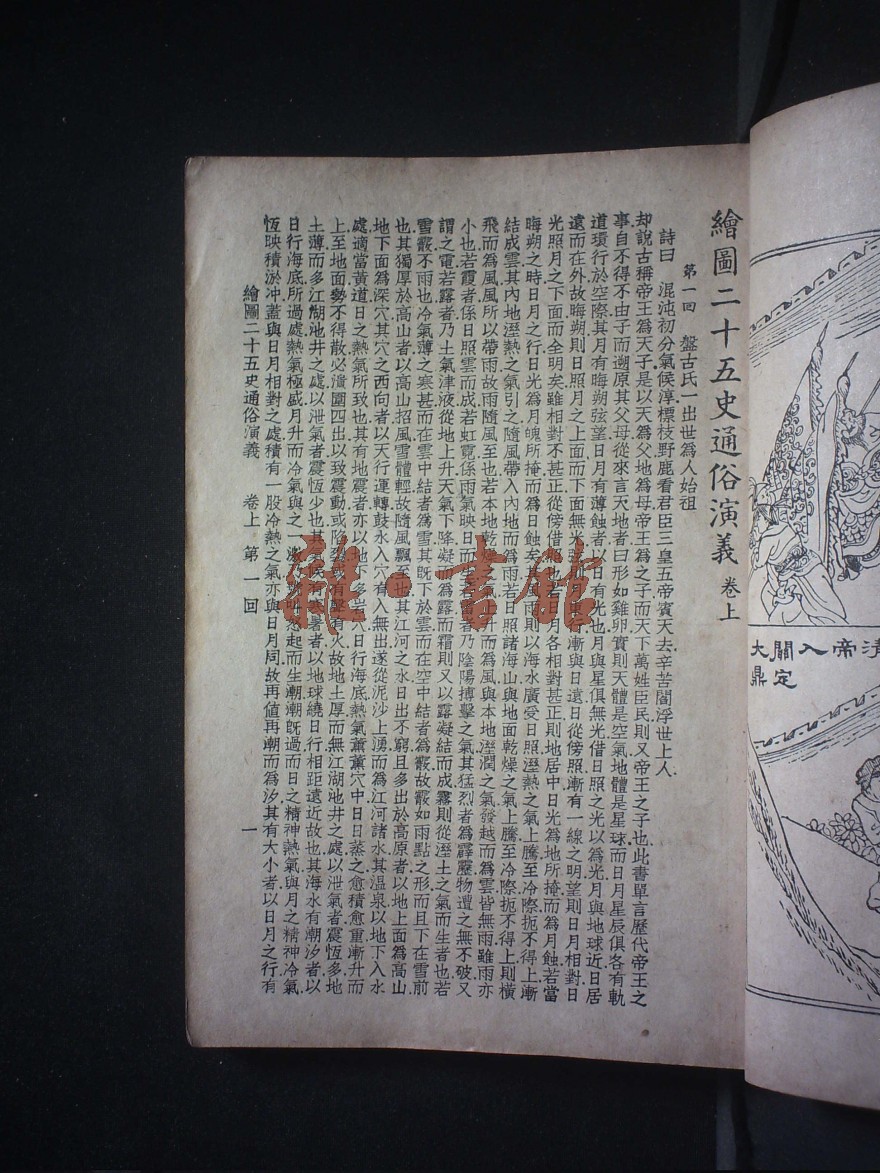 繪圖二十五史通俗演義 卷上
第一回 盤古氏一出世為人始祖
詩曰 混沌初分氣候淳標枝野鹿看君臣三皇五帝賓天去辛苦閻浮世上人
却說古稱帝王為天子是以天為父地為母帝王為之子而天下萬姓臣民則又帝王之子也此書單言歷代帝王之
事自不得不由子而遡原其父母從來言天地者曰形如雞卵實則天體是空氣地體是星球而日月星辰俱各有軌
道環行於空際其月有晦朔弦望日月有薄蝕者以日有光也月與星俱無光借日照之光以為光月與地球近日居
遠而在外故晦朔則日照月之上面而下面無光漸與日遠日從傍照漸有一線之明望則日月相對日
光照月之下面而全明矣雖相對不甚正從傍借照也若日月各相對甚正則地居中日光為地所掩而為月蝕若當
晦朔之時日月之行日光為月魄所掩而為日蝕矣其為雨則以海水廣受日照溼熱之氣上騰至冷際扼不得上漸
結成雲其內地溼熱之氣引之隨風帶入內地而為雨若日照諸海山與地面乾燥之氣上騰至冷際扼不得上則橫
飛而為風風所以帶雨故雨隨風至也若本地乾燥之氣升而為風與本地溼潤之氣發越而為雲皆無雨雖雨亦
小也若霞者係日照雲而成若虹霓係雨氣映日而生雷者乃陰陽搏擊之氣其猛烈者為霹靂物遭之無不破又
謂之電若露者乃土氣津液從地上升天氣下降凝而為露而霜則又以露凝結而成霧則從溼土之氣而生者也若
雪霰不雨也冷氣薄之寒甚而在雲中結者為雪其既下於雲而在空中結者為霰故霰如雨點之形而且下在雪前
也其獨厚於高山者以高山招風雪體輕故隨風飄至也其江河之水日出不窮且多出於高原者以地上面為高山
地下面為深穴其穴之西向者以天行運轉鼓水入穴有入無出遂從泥沙上湧而為江河諸水其溫泉以地下入水
處適當黃道日之熱氣所致也其有地震者亦以地下多岩穴日行海底熱氣薰薰穴中日日蒸之愈積愈重漸升而
上至地面勢不得散必潰圍四出以致震動或陷裂或有聲有火故地土厚而無江湖池井之處以泄氣者震恆多地
土薄而多江湖池井之處以泄氣者震恆少也其氣候有寒暑者以地球繞日行相距遠近故也其海水有潮汐者以
日行海底所過處熱氣極盛月升而冷氣與之一激忽起而生潮潮既過而日之精神熱氣與月之精神冷氣
恆映積淤冲蓋與日月相對之處積有一股冷熱之氣亦與日月同故再值再潮而為汐其有大小者以日月之行有
繪圖二十五史通俗演義 卷上 第一回 一
雜·書館
清帝入關
大定鼎